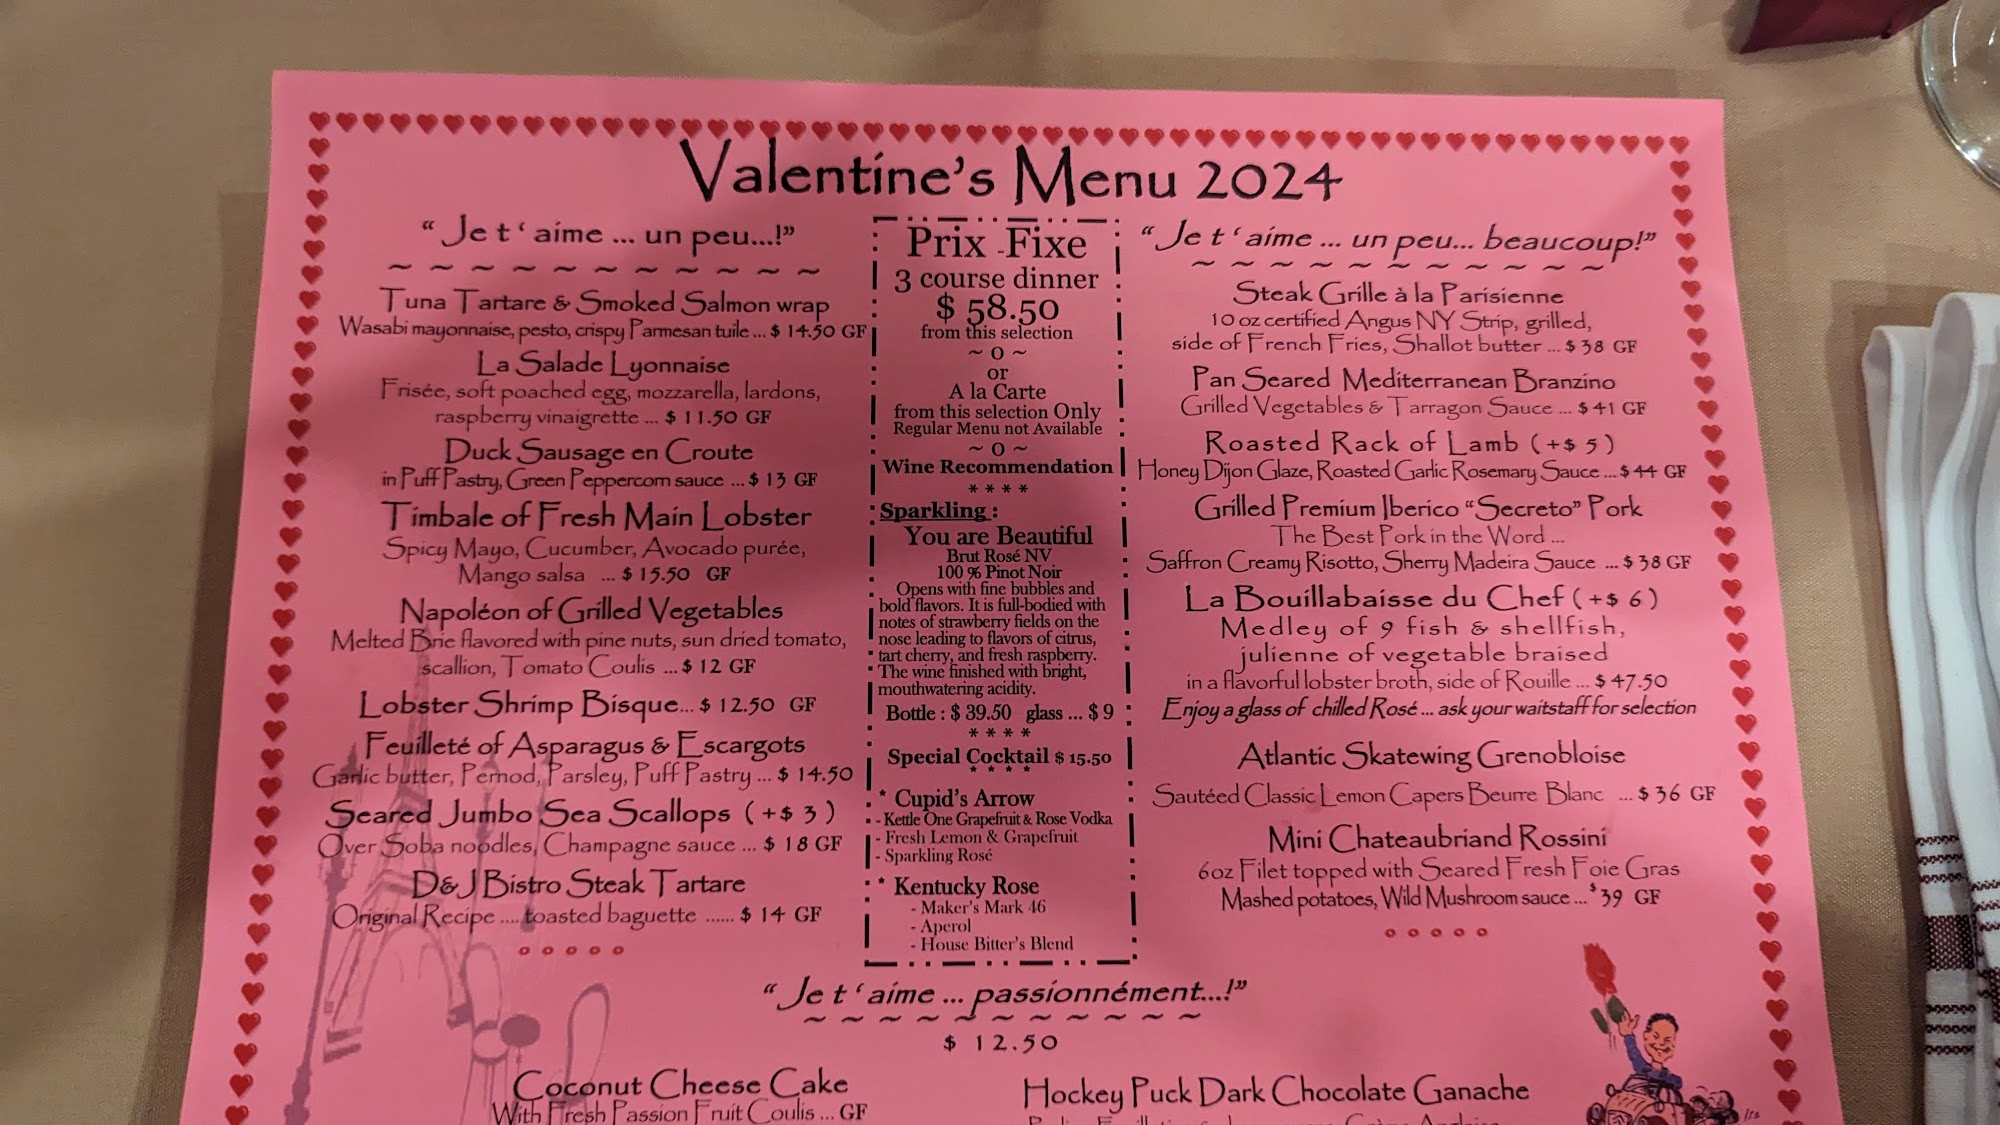 Valentine's Menu 2024
“ Je t ‘ aime ... un peu...!”
~ ~ ~ ~ ~ ~ ~ ~ ~ ~ ~ ~
Tuna Tartare & Smoked Salmon wrap
Wasabi mayonnaise, pesto, crispy Parmesan tuile ... $ 14.50 GF
La Salade Lyonnaise
Frisée, soft poached egg, mozzarella, lardons,
raspberry vinaigrette ... $ 11.50 GF
Duck Sausage en Croute
in Puff Pastry, Green Peppercorn sauce ... $ 13 GF
Timbale of Fresh Main Lobster
Spicy Mayo, Cucumber, Avocado purée,
Mango salsa ... $ 15.50 GF
Napoléon of Grilled Vegetables
Melted Brie flavored with pine nuts, sun dried tomato,
scallion, Tomato Coulis ... $ 12 GF
Lobster Shrimp Bisque... $ 12.50 GF
Feuilleté of Asparagus & Escargots
Garlic butter, Pernod, Parsley, Puff Pastry ... $ 14.50
Seared Jumbo Sea Scallops ( +$ 3 )
Over Soba noodles, Champagne sauce ... $ 18 GF
D&J Bistro Steak Tartare
Original Recipe .... toasted baguette ...... $ 14 GF
o o o o o
Prix - Fixe
3 course dinner
$ 58.50
from this selection
~ o ~
or
A la Carte
from this selection Only
Regular Menu not Available
~ o ~
Wine Recommendation
* * * *
Sparkling :
You are Beautiful
Brut Rosé NV
100 % Pinot Noir
Opens with fine bubbles and
bold flavors. It is full-bodied with
notes of strawberry fields on the
nose leading to flavors of citrus,
tart cherry, and fresh raspberry.
The wine finished with bright,
mouthwatering acidity.
Bottle : $ 39.50 glass ... $ 9
* * * *
Special Cocktail $ 15.50
* * * *
* Cupid's Arrow
- Kettle One Grapefruit & Rose Vodka
- Fresh Lemon & Grapefruit
- Sparkling Rosé
* Kentucky Rose
- Maker's Mark 46
- Aperol
- House Bitter's Blend
“ Je t ‘ aime ... un peu... beaucoup!”
~ ~ ~ ~ ~ ~ ~ ~ ~ ~ ~ ~
Steak Grille à la Parisienne
10 oz certified Angus NY Strip, grilled,
side of French Fries, Shallot butter ... $ 38 GF
Pan Seared Mediterranean Branzino
Grilled Vegetables & Tarragon Sauce ... $ 41 GF
Roasted Rack of Lamb ( +$ 5 )
Honey Dijon Glaze, Roasted Garlic Rosemary Sauce ... $ 44 GF
Grilled Premium Iberico “Secreto” Pork
The Best Pork in the Word ...
Saffron Creamy Risotto, Sherry Madeira Sauce ... $ 38 GF
La Bouillabaisse du Chef ( +$ 6 )
Medley of 9 fish & shellfish,
julienne of vegetable braised
in a flavorful lobster broth, side of Rouille ... $ 47.50
Enjoy a glass of chilled Rosé ... ask your waitstaff for selection
Atlantic Skatewing Grenobloise
Sautéed Classic Lemon Capers Beurre Blanc ... $ 36 GF
Mini Chateaubriand Rossini
6oz Filet topped with Seared Fresh Foie Gras
Mashed potatoes, Wild Mushroom sauce ... $39 GF
o o o o o
“ Je t ‘ aime ... passionnément...!”
~ ~ ~ ~ ~ ~ ~ ~ ~ ~ ~
$ 12.50
Coconut Cheese Cake
With Fresh Passion Fruit Coulis ... GF
Hockey Puck Dark Chocolate Ganache